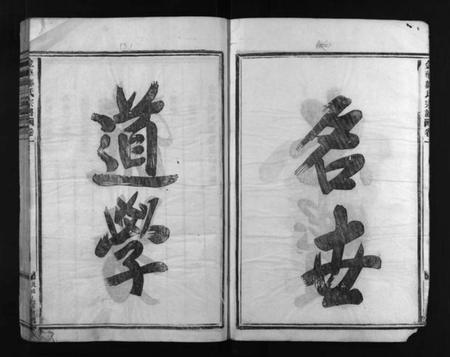 名世
道學